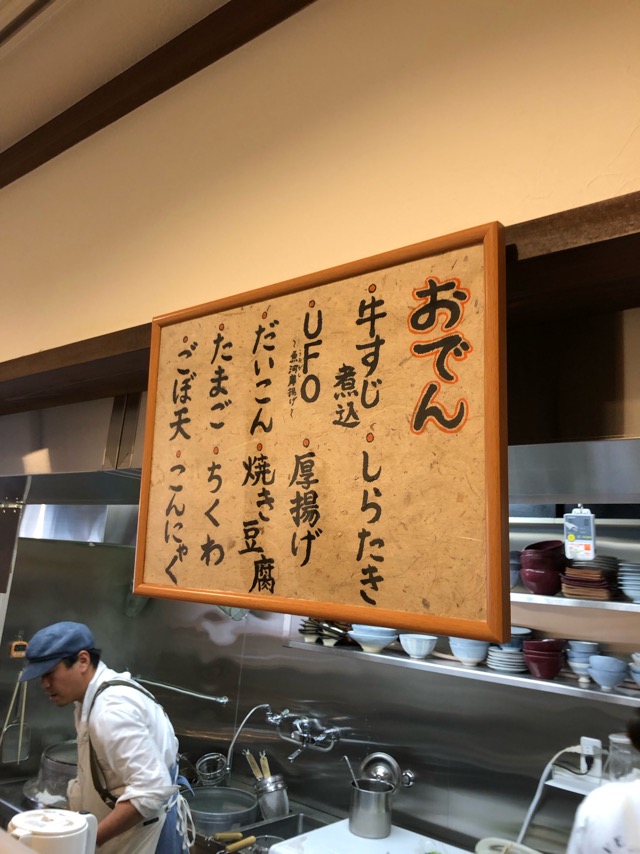 おでん
牛すじ煮込
しらたき
UFO
～魚河岸揚げ～
厚揚げ
だいこん
焼き豆腐
たまご
ちくわ
ごぼ天
こんにゃく